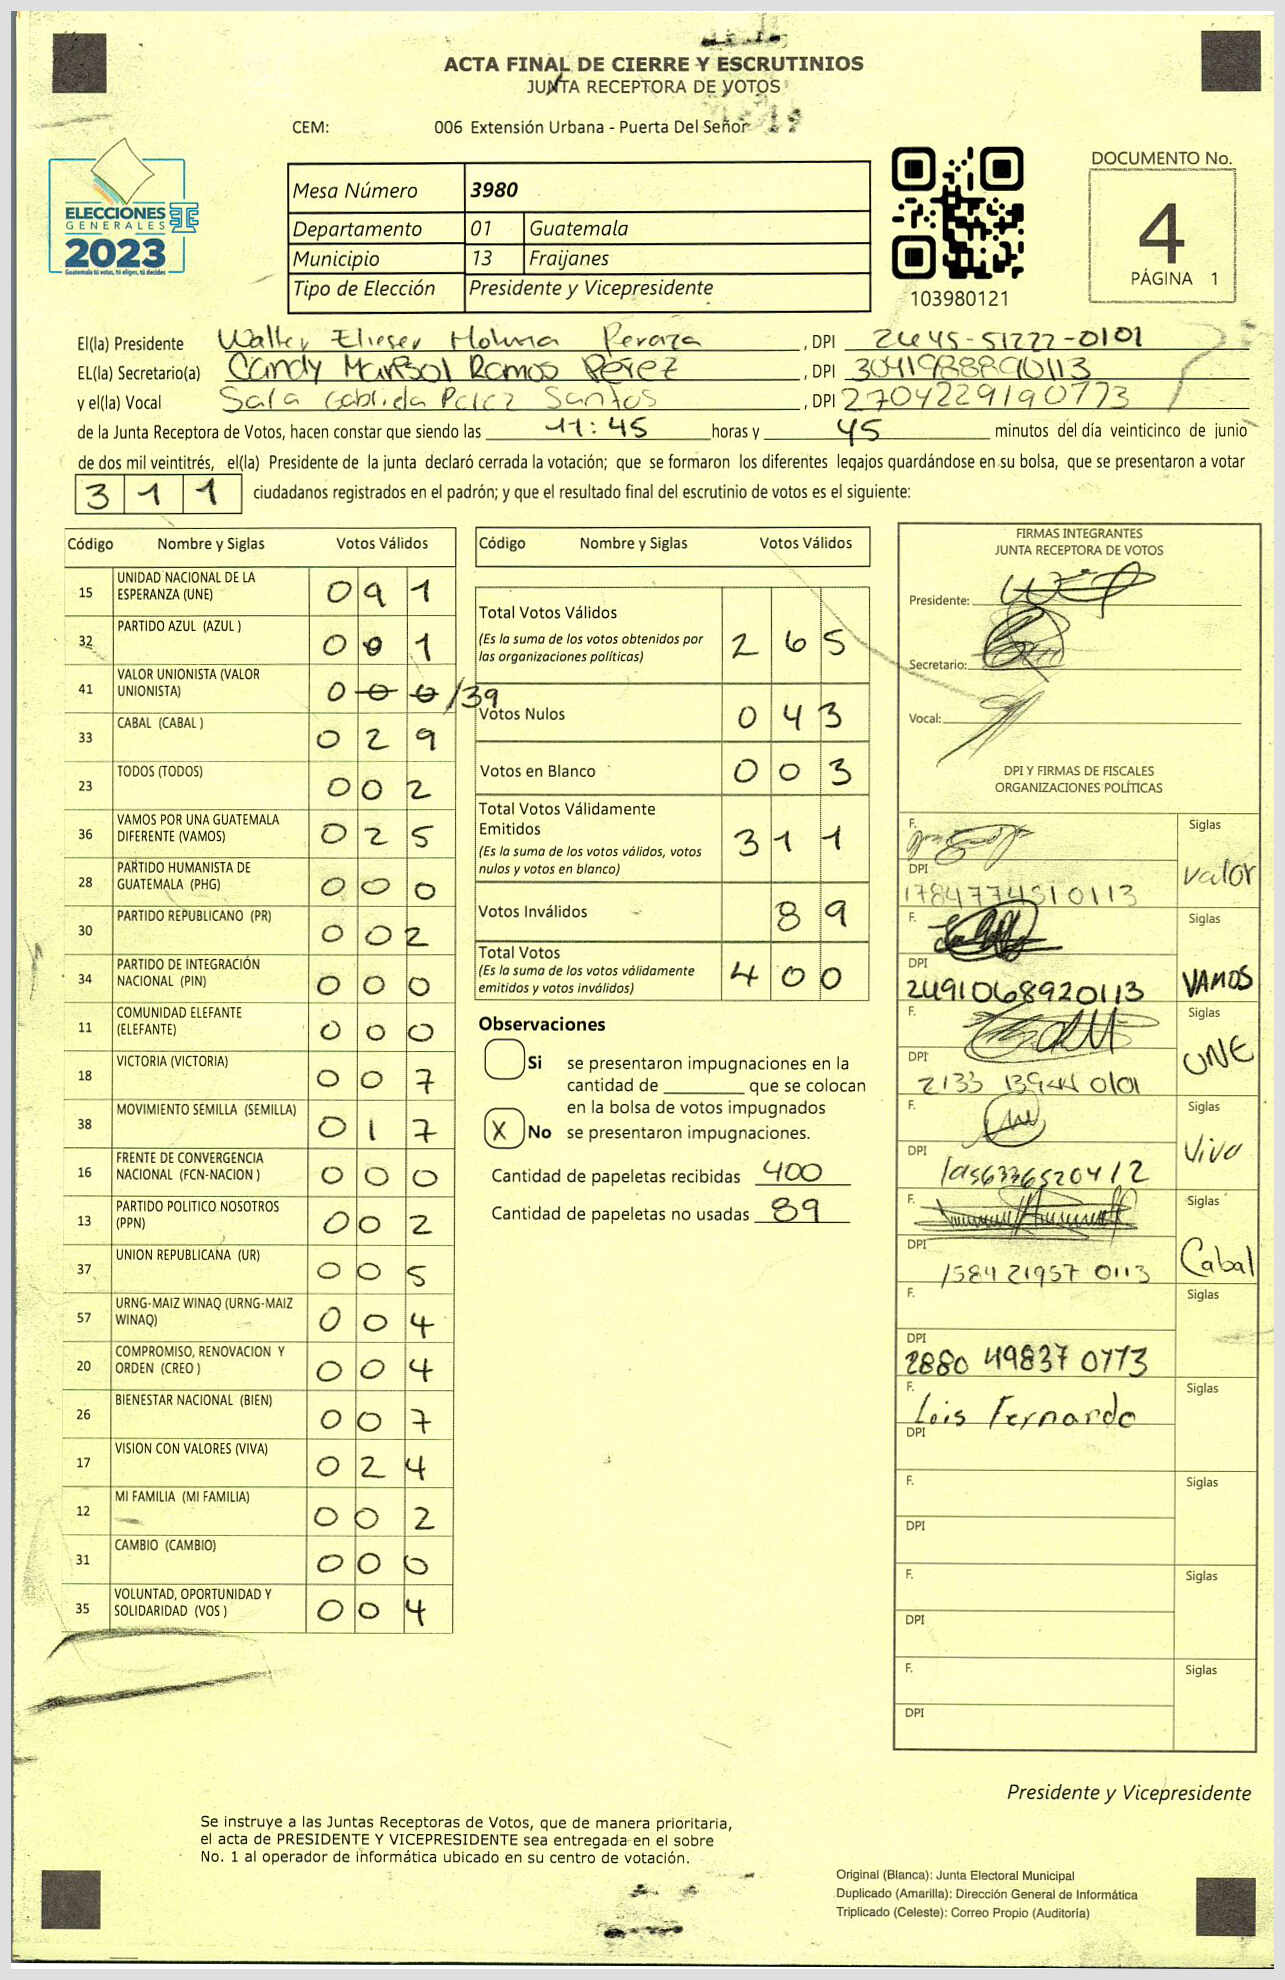 ACTA FINAL DE CIERRE Y ESCRUTINIOS
JUNTA RECEPTORA DE VOTOS
CEM: 006 Extensión Urbana - Puerta Del Señor
ELECCIONES
GENERALES
2023
Guatemala tú votas, tú eliges, tú decides
Mesa Número 3980
Departamento 01 Guatemala
Municipio 13 Fraijanes
Tipo de Elección Presidente y Vicepresidente
103980121
DOCUMENTO No.
4
PÁGINA 1
El(la) Presidente Walter Elieser Molina Peraza , DPI 2645-51222-0101
EL(la) Secretario(a) Candy Marisol Ramos Pérez , DPI 3041988890113
y el(la) Vocal Sara Gabriela Perez Santos , DPI 2704229190773
de la Junta Receptora de Votos, hacen constar que siendo las 11:45 horas y 45 minutos del día veinticinco de junio
de dos mil veintitrés, el(la) Presidente de la junta declaró cerrada la votación; que se formaron los diferentes legajos guardándose en su bolsa, que se presentaron a votar
311 ciudadanos registrados en el padrón; y que el resultado final del escrutinio de votos es el siguiente:
Código Nombre y Siglas Votos Válidos
15 UNIDAD NACIONAL DE LA ESPERANZA (UNE) 091
32 PARTIDO AZUL (AZUL ) 001
41 VALOR UNIONISTA (VALOR UNIONISTA) 000/39
33 CABAL (CABAL ) 029
23 TODOS (TODOS) 002
36 VAMOS POR UNA GUATEMALA DIFERENTE (VAMOS) 025
28 PARTIDO HUMANISTA DE GUATEMALA (PHG) 000
30 PARTIDO REPUBLICANO (PR) 002
34 PARTIDO DE INTEGRACIÓN NACIONAL (PIN) 000
11 COMUNIDAD ELEFANTE (ELEFANTE) 000
18 VICTORIA (VICTORIA) 007
38 MOVIMIENTO SEMILLA (SEMILLA) 017
16 FRENTE DE CONVERGENCIA NACIONAL (FCN-NACION ) 000
13 PARTIDO POLITICO NOSOTROS (PPN) 002
37 UNION REPUBLICANA (UR) 005
57 URNG-MAIZ WINAQ (URNG-MAIZ WINAQ) 004
20 COMPROMISO, RENOVACION Y ORDEN (CREO ) 004
26 BIENESTAR NACIONAL (BIEN) 007
17 VISION CON VALORES (VIVA) 024
12 MI FAMILIA (MI FAMILIA) 002
31 CAMBIO (CAMBIO) 000
35 VOLUNTAD, OPORTUNIDAD Y SOLIDARIDAD (VOS ) 004
Código Nombre y Siglas Votos Válidos
Total Votos Válidos 265
(Es la suma de los votos obtenidos por
las organizaciones políticas)
Votos Nulos 043
Votos en Blanco 003
Total Votos Válidamente
Emitidos 311
(Es la suma de los votos válidos, votos
nulos y votos en blanco)
Votos Inválidos 89
Total Votos 400
(Es la suma de los votos válidamente
emitidos y votos inválidos)
Observaciones
Si se presentaron impugnaciones en la
cantidad de que se colocan
en la bolsa de votos impugnados
X No se presentaron impugnaciones.
Cantidad de papeletas recibidas 400
Cantidad de papeletas no usadas 89
FIRMAS INTEGRANTES
JUNTA RECEPTORA DE VOTOS
Presidente:
Secretario:
Vocal:
DPI Y FIRMAS DE FISCALES
ORGANIZACIONES POLÍTICAS
F. Siglas
DPI valor
1784774510113
F. Siglas
DPI VAMOS
2491068920113
F. Siglas
DPI UNE
2133 0101
F. Siglas
DPI Viva
F. Siglas
DPI Cabal
1584 21957 0113
F. Siglas
DPI
2880 49837 0773
F. Siglas
Luis Fernando
DPI
F. Siglas
DPI
F. Siglas
DPI
F. Siglas
DPI
Presidente y Vicepresidente
Se instruye a las Juntas Receptoras de Votos, que de manera prioritaria,
el acta de PRESIDENTE Y VICEPRESIDENTE sea entregada en el sobre
No. 1 al operador de informática ubicado en su centro de votación.
Original (Blanca): Junta Electoral Municipal
Duplicado (Amarilla): Dirección General de Informática
Triplicado (Celeste): Correo Propio (Auditoría)